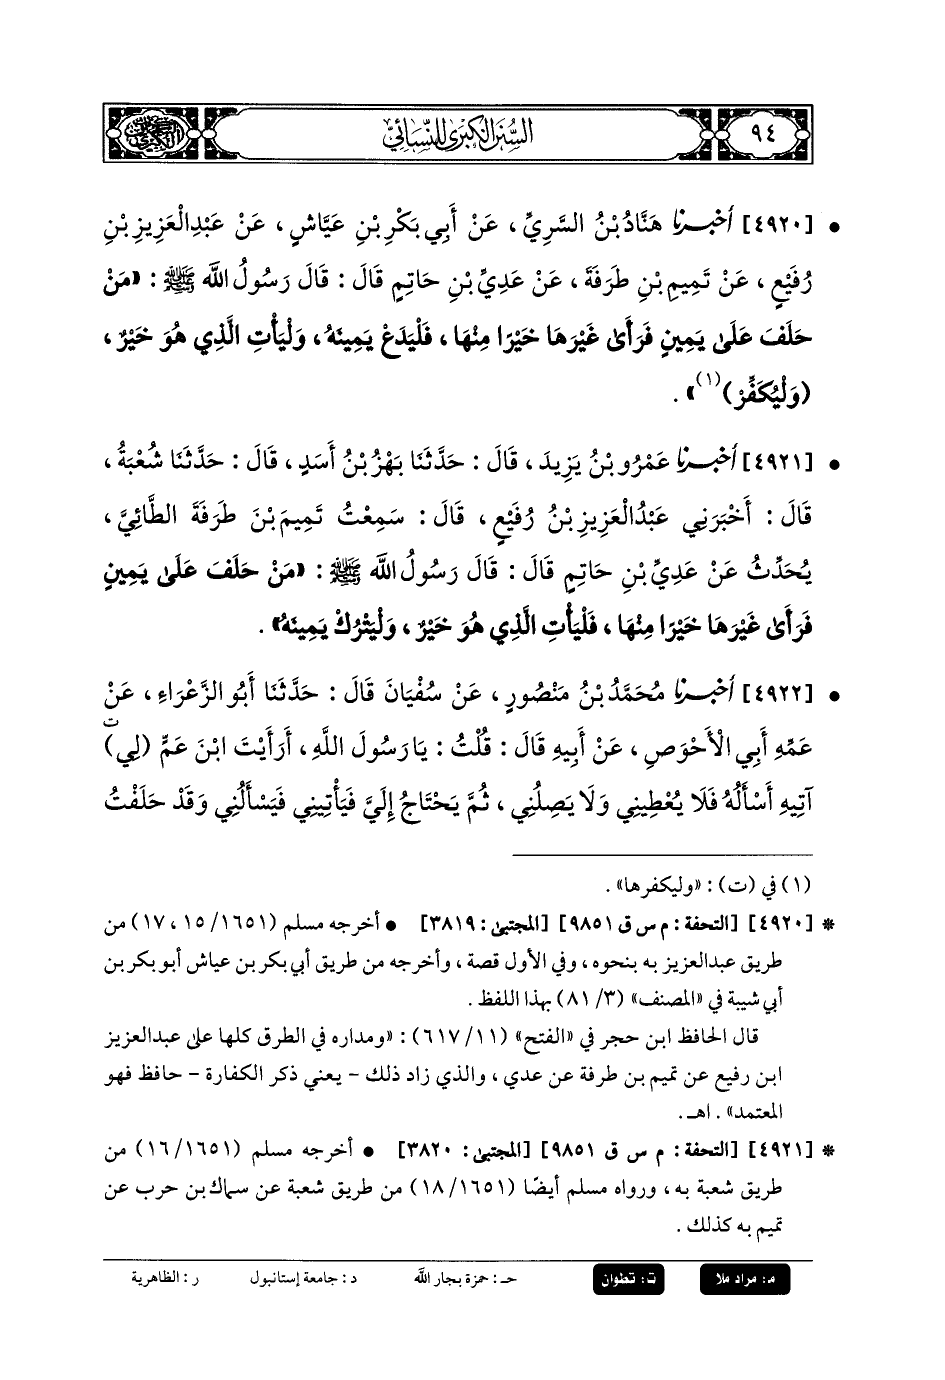 ٩٤
السُّنَنُ الكُبْرَى لِلنَّسَائِيِّ
• [٤٩٢٠] أخبرنا هَنَّادُ بْنُ السَّرِيِّ، عَنْ أَبِي بَكْرِ بْنِ عَيَّاشٍ، عَنْ عَبْدِالْعَزِيزِ بْنِ
رُفَيْعٍ، عَنْ تَمِيمِ بْنِ طَرَفَةَ، عَنْ عَدِيِّ بْنِ حَاتِمٍ قَالَ: قَالَ رَسُولُ اللَّه ﷺ: «مَنْ
حَلَفَ عَلَى يَمِينٍ فَرَأَى غَيْرَهَا خَيْرًا مِنْهَا، فَلْيَدَعْ يَمِينَهُ، وَلْيَأْتِ الَّذِي هُوَ خَيْرٌ،
(وَلْيُكَفِّرْ)(١)».
• [٤٩٢١] أخبرنا عَمْرُو بْنُ يَزِيدَ، قَالَ: حَدَّثَنَا بَهْزُ بْنُ أَسَدٍ، قَالَ: حَدَّثَنَا شُعْبَةُ،
قَالَ: أَخْبَرَنِي عَبْدُالْعَزِيزِ بْنُ رُفَيْعٍ، قَالَ: سَمِعْتُ تَمِيمَ بْنَ طَرَفَةَ الطَّائِيَّ،
يُحَدِّثُ عَنْ عَدِيِّ بْنِ حَاتِمٍ قَالَ: قَالَ رَسُولُ اللَّه ﷺ: «مَنْ حَلَفَ عَلَى يَمِينٍ
فَرَأَى غَيْرَهَا خَيْرًا مِنْهَا، فَلْيَأْتِ الَّذِي هُوَ خَيْرٌ، وَلْيَتْرُكْ يَمِينَهُ».
• [٤٩٢٢] أخبرنا مُحَمَّدُ بْنُ مَنْصُورٍ، عَنْ سُفْيَانَ قَالَ: حَدَّثَنَا أَبُو الزَّعْرَاءِ، عَنْ
عَمِّهِ أَبِي الْأَحْوَصِ، عَنْ أَبِيهِ قَالَ: قُلْتُ: يَا رَسُولَ اللَّهِ، أَرَأَيْتَ ابْنَ عَمٍّ (لِي)ت
آتِيهِ أَسْأَلُهُ فَلَا يُعْطِينِي وَلَا يَصِلُنِي، ثُمَّ يَحْتَاجُ إِلَيَّ فَيَأْتِينِي فَيَسْأَلُنِي وَقَدْ حَلَفْتُ
(١) في (ت): «وليكفرها».
* [٤٩٢٠] [التحفة: م س ق ٩٨٥١] [المجتبى: ٣٨١٩] • أخرجه مسلم (١٦٥١/ ١٥، ١٧) من
طريق عبدالعزيز به بنحوه، وفي الأول قصة، وأخرجه من طريق أبي بكر بن عياش أبو بكر بن
أبي شيبة في «المصنف» (٣/ ٨١) بهذا اللفظ.
قال الحافظ ابن حجر في «الفتح» (١١/ ٦١٧): «ومداره في الطرق كلها على عبدالعزيز
ابن رفيع عن تميم بن طرفة عن عدي، والذي زاد ذلك - يعني ذكر الكفارة - حافظ فهو
المعتمد». اهـ.
* [٤٩٢١] [التحفة: م س ق ٩٨٥١] [المجتبى: ٣٨٢٠] • أخرجه مسلم (١٦٥١/ ١٦) من
طريق شعبة به، ورواه مسلم أيضًا (١٦٥١/ ١٨) من طريق شعبة عن سماك بن حرب عن
تميم به كذلك.
م: مراد ملا ت: تطوان حـ: حمزة بجار الله د: جامعة إستانبول ر: الظاهرية